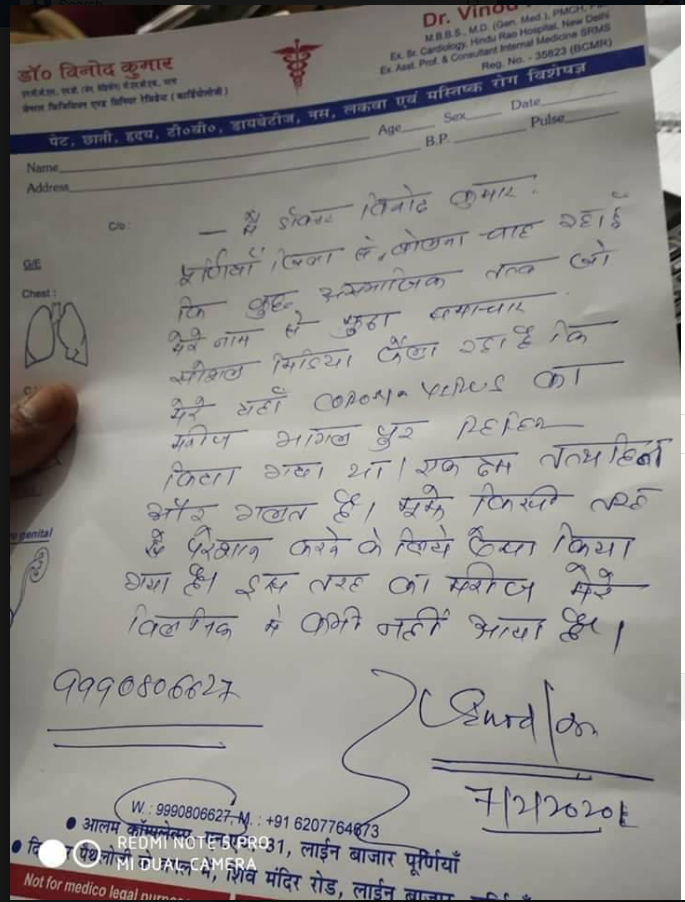 डॉ० विनोद कुमार
Dr. Vinod
M.B.B.S., M.D. (Gen. Med.), PMCH,
Ex. Sr. Cardiology, Hindu Rao Hospital, New Delhi
Ex. Asst. Prof. & Consultant Internal Medicine SRMS
Reg. No. - 35823 (BCMR)
पेट, छाती, हृदय, टी०बी०, डायबेटीज, नस, लकवा एवं मस्तिष्क रोग विशेषज्ञ
Name Age Sex Date
Address B.P. Pulse
C/o :
O/E
Chest :
— मैं डॉक्टर विनोद कुमार .
पूर्णियाँ जिला से, बोलना चाह रहा हूँ
कि कुछ असमाजिक तत्व जो
मेरे नाम से झूठा समाचार
सोशल मिडिया फैला रहा है कि
मेरे यहाँ CORONA VIRUS का
मरीज भागलपुर REFER
किया गया था। एक दम तथ्यहिन
और गलत है। मुझे किसी तरह
से परेशान करने के लिये ऐसा किया
गया है। इस तरह का मरीज मेरे
क्लिनिक में कभी नहीं आया है।
9990806627
7/2/2020
W. : 9990806627, M. : +91 6207764673
आलम कॉम्पलेक्स, 31, लाईन बाजार पूर्णियाँ
पैथलोजी के बगल में, शिव मंदिर रोड, लाईन बाजार
Not for medico legal
genital
REDMI NOTE 5 PRO
MI DUAL CAMERA